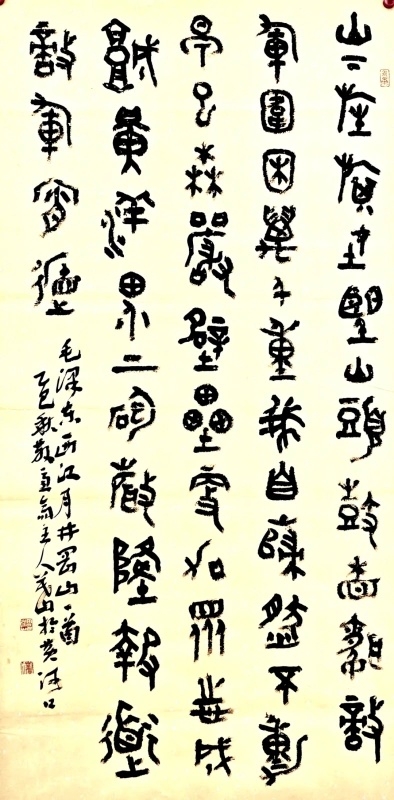 山下旌旗在望山頭鼓角相聞敵
軍圍困萬千重我自巋然不動
早已森嚴壁壘更加眾志成
城黃洋界上炮聲隆報道
敵軍宵遁
毛澤东西江月井岡山一首
秋 主人茂山於黄河口